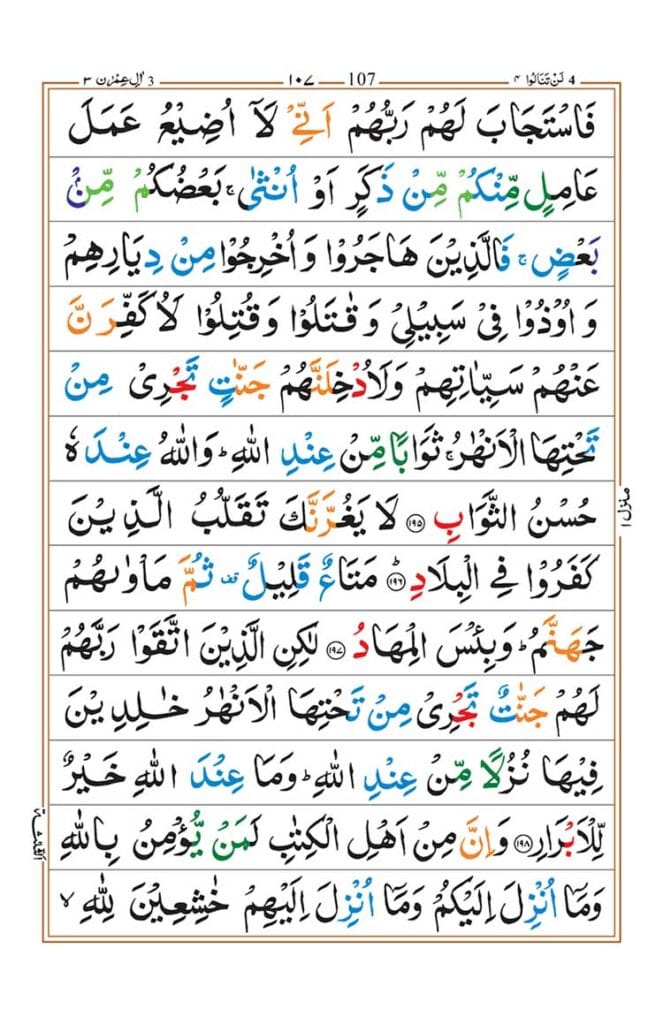 4 لَنْ تَنَالُوا ۴ 107 ۱۰۷ 3 اٰلِ عِمْرٰن ۳
فَاسْتَجَابَ لَهُمْ رَبُّهُمْ اَنِّيْ لَاۤ اُضِيْعُ عَمَلَ
عَامِلٍ مِّنْكُمْ مِّنْ ذَكَرٍ اَوْ اُنْثٰى ۚ بَعْضُكُمْ مِّنْۢ
بَعْضٍ ۚ فَالَّذِيْنَ هَاجَرُوْا وَاُخْرِجُوْا مِنْ دِيَارِهِمْ
وَاُوْذُوْا فِيْ سَبِيْلِيْ وَقٰتَلُوْا وَقُتِلُوْا لَاُكَفِّرَنَّ
عَنْهُمْ سَيِّاٰتِهِمْ وَلَاُدْخِلَنَّهُمْ جَنّٰتٍ تَجْرِيْ مِنْ
تَحْتِهَا الْاَنْهٰرُ ۚ ثَوَابًا مِّنْ عِنْدِ اللّٰهِ ؕ وَاللّٰهُ عِنْدَهٗ
حُسْنُ الثَّوَابِ ۱۹۵ لَا يَغُرَّنَّكَ تَقَلُّبُ الَّذِيْنَ
كَفَرُوْا فِي الْبِلَادِ ؕ ۱۹۶ مَتَاعٌ قَلِيْلٌ قف ثُمَّ مَاْوٰىهُمْ
جَهَنَّمُ ؕ وَبِئْسَ الْمِهَادُ ۱۹۷ لٰكِنِ الَّذِيْنَ اتَّقَوْا رَبَّهُمْ
لَهُمْ جَنّٰتٌ تَجْرِيْ مِنْ تَحْتِهَا الْاَنْهٰرُ خٰلِدِيْنَ
فِيْهَا نُزُلًا مِّنْ عِنْدِ اللّٰهِ ؕ وَمَا عِنْدَ اللّٰهِ خَيْرٌ
لِّلْاَبْرَارِ ۱۹۸ وَاِنَّ مِنْ اَهْلِ الْكِتٰبِ لَمَنْ يُّؤْمِنُ بِاللّٰهِ
وَمَاۤ اُنْزِلَ اِلَيْكُمْ وَمَاۤ اُنْزِلَ اِلَيْهِمْ خٰشِعِيْنَ لِلّٰهِ ۙ
منزل ۱
الثلثة